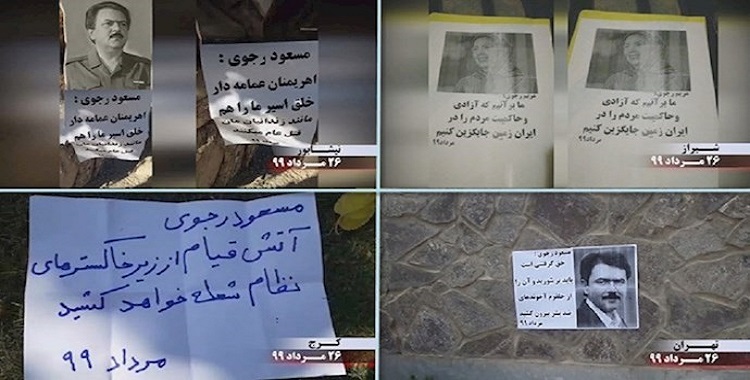 مسعود رجوی :
اهریمنان عمامه دار
خلق اسیر ما را هم
مسعود رجوی :
اهریمنان عمامه دار
خلق اسیر ما را هم
مانند زندانیان
قتل عام میکنند
نیشابور
۲۶ مرداد ۹۹
مریم رجوی:
ما برآنیم که آزادی
وحاکمیت مردم را در
ایران زمین جایگزین کنیم
مرداد۹۹
مریم رجوی:
ما برآنیم که آزادی
وحاکمیت مردم را در
ایران زمین جایگزین کنیم
مرداد۹۹
شیراز
۲۶ مرداد ۹۹
مسعود رجوی
آتش قیام از زیر خاکسترهای
نظام شعله خواهد کشید
مرداد ۹۹
کرج
۲۶ مرداد ۹۹
مسعود رجوی:
حق گرفتنی است
باید بر شورید و آن را
از حلقوم آخوندهای
ضد بشر بیرون کشید
مرداد ۹۹
تهران
۲۶ مرداد ۹۹